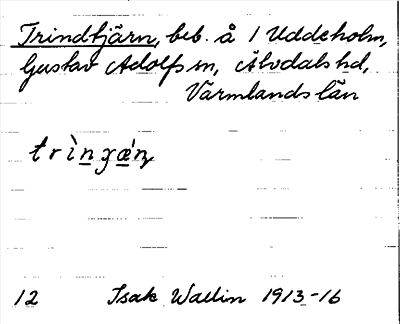 Trindtjärn, beb. å 1 Uddeholm,
Gustav Adolfs sn, Älvdals hd,
Värmlands län
trìngǽɳ
12 Isak Wallin 1913-16